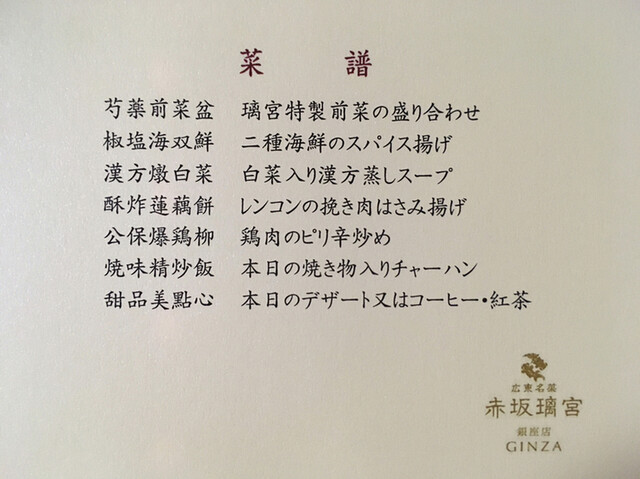 菜譜
芍薬前菜盆 璃宮特製前菜の盛り合わせ
椒塩海双鮮 二種海鮮のスパイス揚げ
漢方燉白菜 白菜入り漢方蒸しスープ
酥炸蓮藕餅 レンコンの挽き肉はさみ揚げ
公保爆鶏柳 鶏肉のピリ辛炒め
焼味精炒飯 本日の焼き物入りチャーハン
甜品美點心 本日のデザート又はコーヒー・紅茶
広東名菜
赤坂璃宮
銀座店
GINZA